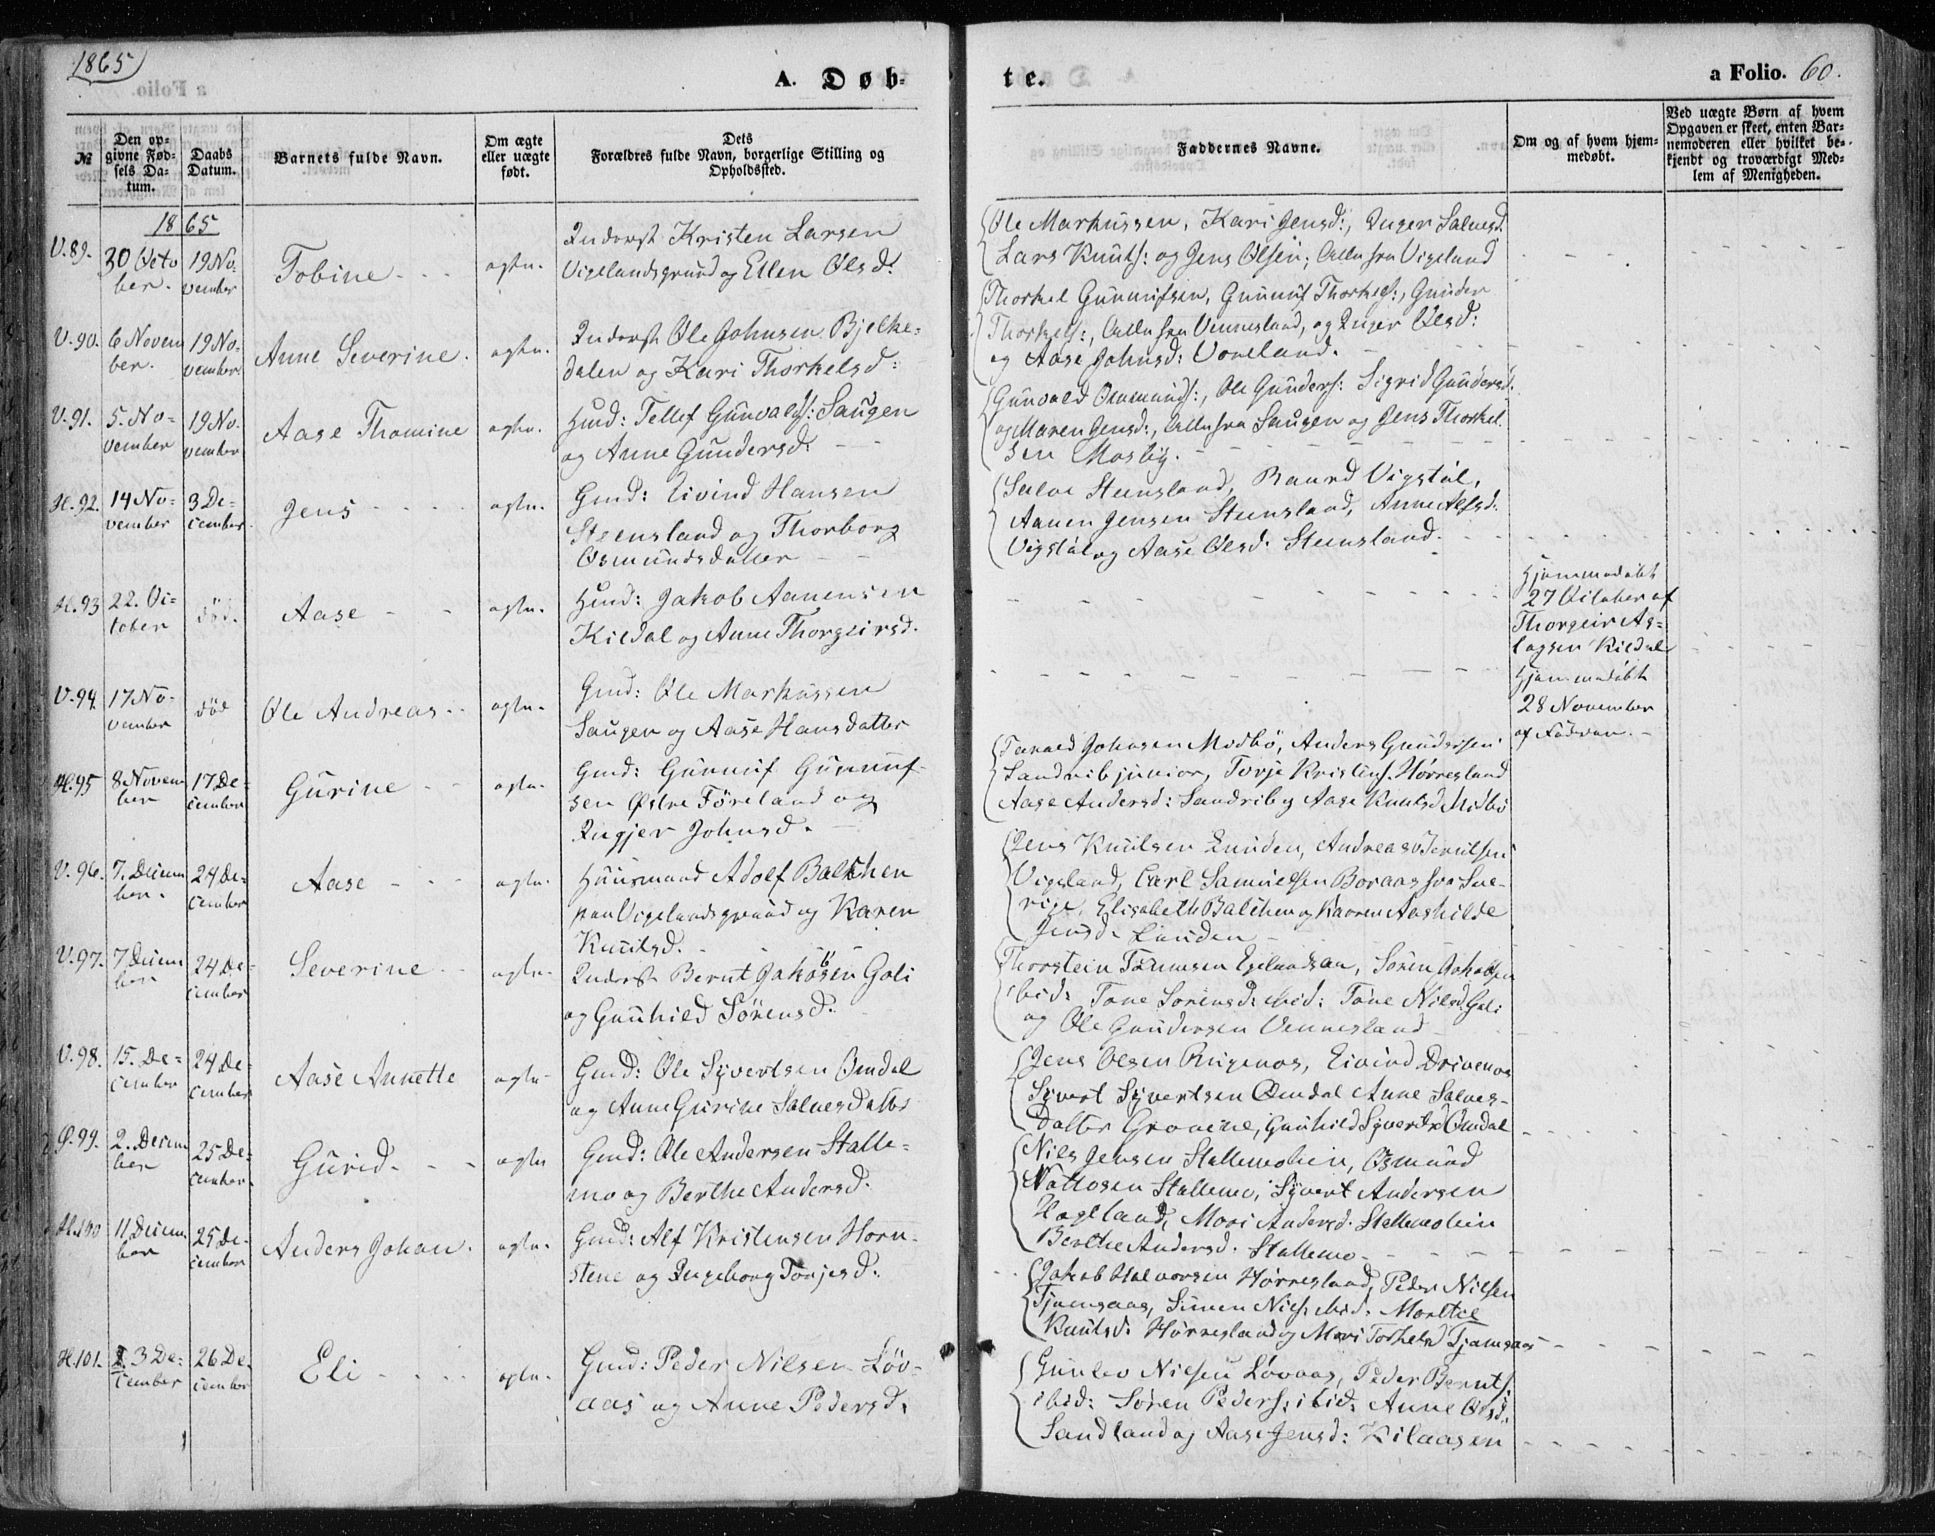 1865
A. Døb-
te.
a Folio. 60.
№
Den op-
givne Fød-
sels Da-
tum.
Daabs
Datum.
Barnets fulde Navn.
Om ægte
eller uægte
født.
Dets
Forældres fulde Navn, borgerlige Stilling og
Opholdssted.
Faddernes Navne.
Om og af hvem hjem-
medøbt.
Ved uægte Børn af hvem
Opgaven er skeet, enten Bar-
nemoderen eller hvilket be-
kjendt og troværdigt Med-
lem af Menigheden.
1865
V.89.
30 Octo
ber.
19 No-
vember
Tobine
ægte.
Inderst Kristen Larsen
Vigelandsgrund og Ellen Olsd:
Ole Markussen, Kari Jensd:, Inger Salvesd.
Lars Knuts: og Jens Olsen; Alle fra Vigeland
V.90.
6 Novem
ber.
19 No-
vember
Anne Severine.
ægte.
Inderst Ole Johnsen Bjelke-
dalen og Kari Thorkelsd:
Thorkel Gunnufsen, Gunnuf Thorkels:, Gunder
Thorkels:, Alle fra Vennesland, og Inger Olsd:
og Aase Johnsd: Voreland.
V.91.
5. No-
vember
19 No-
vember
Aase Thomine
ægte.
Huusd: Tellef Gunvalds: Saugen
og Anne Gundersd.
Gunvald Osmunds:, Ole Gunders: Sigrid Gundersd:
og Maren Jensd:, Alle fra Saugen og Jens Thorkel-
sen Mosby.
H.92.
14 No-
vember
3 De-
cember.
Jens
ægte.
Gmd: Eivind Hansen
Steensland og Thorborg
Osmundsdatter
Salve Steensland, Baard Vigstøl,
Aanen Jensen Steensland, Anne Alfsd:
Vigstøl og Aase Olsd. Steensland.
H.93
22. Oc-
tober
død.
Aase
ægte.
Huusd: Jakob Aanensen
Kildal og Anne Thorgeirsd.
Hjemmedøbt
27 October af
Thorgeir As-
lagsen Kildal
V.94.
17. No-
vember
død
Ole Andreas
ægte.
Gmd: Ole Markussen
Saugen og Aase Hansdatter
Hjemmedøbt
28 November
af Faderen.
H.95
8 Novem
ber
17 De-
cember
Gurine
ægte.
Gmd: Gunnuf Gunnuf-
sen Østre Føreland og
Ingjer Johnsd.
Tarald Johnsen Midbø, Anders Gundersen
Sandrib junior, Torje Kristens. Hørresland
Aase Andersd: Sandrib og Aase Knutsd Midbø
V.96.
7. Decem
ber.
24 De-
cember
Aase
ægte.
Huusmand Adolf Balchen
paa Vigelandsgrund og Karen
Knutsd.
Jens Knutsen Lunden, Andreas Berntsen
Vigeland, Carl Samuelsen Boraas fra Sve-
rige, Elisabeth Balchen og Karen Aashilde
Jensd. Lunden
V.97.
7 Decem
ber
24 De-
cember
Severine
ægte.
Inderst Bernt Jakobsen Goli
og Gunhild Sørensd.
Thorstein Tønnesen Egelandsaa, Søren Jakobsen
ibid: Tone Sørensd: ibid: Tone Nilsd Goli
og Ole Gundersen Vennesland
V.98.
15. De-
cember
24 De-
cember
Aase Annette
ægte
Gmd: Ole Syvertsen Omdal
og Anne Gurine Salvesdatter
Jens Olsen Rugenes, Eivind Drivenes
Syvert Syvertsen Omdal Anne Salves-
datter Grovene, Gunhild Syvertsd Omdal
Ø.99.
2. Decem
ber
25 De-
cember.
Gurid.
ægte
Gmd: Ole Andersen Stalle-
mo og Berthe Andersd.
Nils Jensen Stallemohein, Osmund
Nottosen Stallemo, Syvert Andersen
Hageland, Mari Andersd. Stallemohein
Berthe Andersd. Stallemo
H.100
11 Decem
ber
25 De-
cember
Anders Johan.
ægte.
Gmd: Alf Kristensen Horn-
stene og Ingeborg Torjesd.
Jakob Halvorsen Hørresland, Peder Nilsen
Tjomsaas, Simen Niels. ibid. Marthe
Knutsd. Hørresland og Mari Torkelsd Tjomsaas
H.101.
3 De-
cember
26 De-
cember
Eli
ægte.
Gmd: Peder Nilsen Løv-
aas og Anne Pedersd.
Gunlev Nielsen Løvaas, Peder Bernts:
ibid: Søren Peders: ibid: Anne Olsd.
Sandland og Aase Jensd: Kilaasen